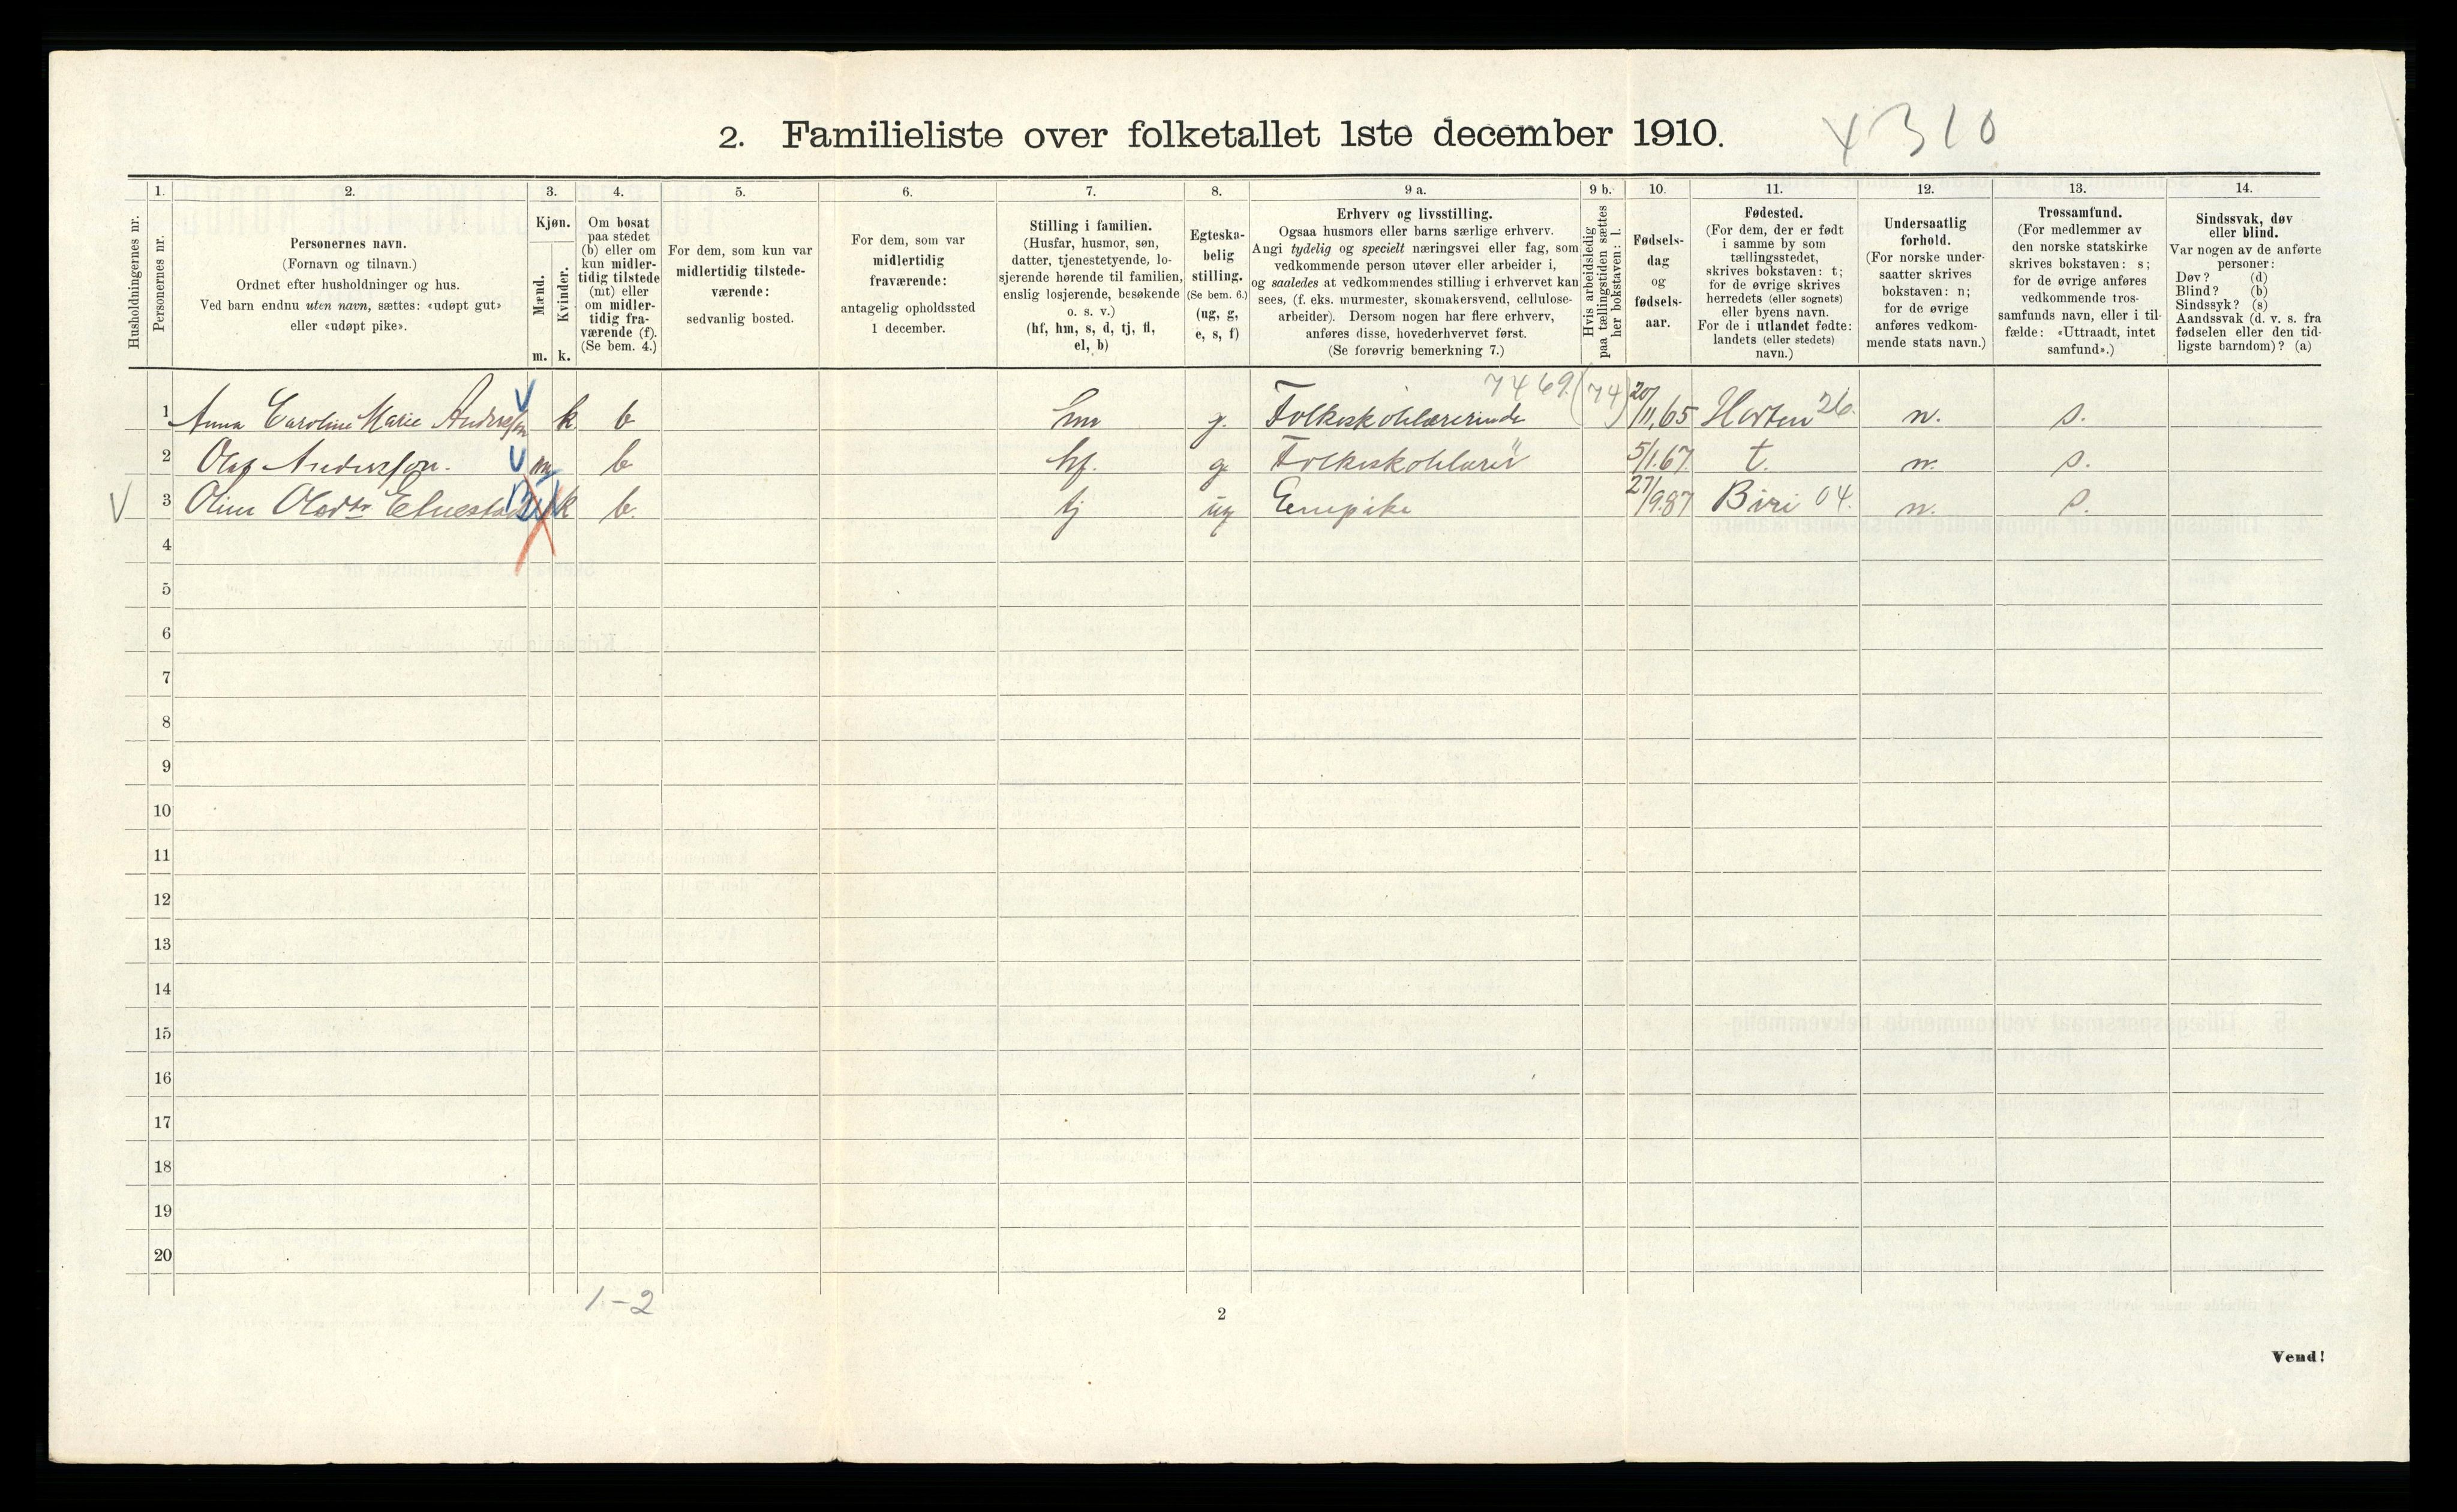 2. Familieliste over folketallet 1ste december 1910.
4310
Husholdningernes nr.
1.
Personernes nr.
2.
Personernes navn.
(Fornavn og tilnavn.)
Ordnet efter husholdninger og hus.
Ved barn endnu uten navn, sættes: «udøpt gut»
eller «udøpt pike».
3.
Kjøn.
Mænd.
Kvinder.
m. k.
4.
Om bosat
paa stedet
(b) eller om
kun midler-
tidig tilstede
(mt) eller
om midler-
tidig fra-
værende (f).
(Se bem. 4.)
5.
For dem, som kun var
midlertidig tilstede-
værende:
sedvanlig bosted.
6.
For dem, som var
midlertidig
fraværende:
antagelig opholdssted
1 december.
7.
Stilling i familien.
(Husfar, husmor, søn,
datter, tjenestetyende, lo-
sjerende hørende til familien,
enslig losjerende, besøkende
o. s. v.)
(hf, hm, s, d, tj, fl,
el, b)
8.
Egteska-
belig
stilling.
(Se bem. 6.)
(ug, g,
e, s, f)
9 a.
Erhverv og livsstilling.
Ogsaa husmors eller barns særlige erhverv.
Angi tydelig og specielt næringsvei eller fag, som
vedkommende person utøver eller arbeider i,
og saaledes at vedkommendes stilling i erhvervet kan
sees, (f. eks. murmester, skomakersvend, cellulose-
arbeider). Dersom nogen har flere erhverv,
anføres disse, hovederhvervet først.
(Se forøvrig bemerkning 7.)
9 b.
Hvis arbeidsledig
paa tællingstiden sættes
her bokstaven: l.
10.
Fødsels-
dag
og
fødsels-
aar.
11.
Fødested.
(For dem, der er født
i samme by som
tællingsstedet,
skrives bokstaven: t;
for de øvrige skrives
herredets (eller sognets)
eller byens navn.
For de i utlandet fødte:
landets (eller stedets)
navn.)
12.
Undersaatlig
forhold.
(For norske under-
saatter skrives
bokstaven: n;
for de øvrige
anføres vedkom-
mende stats navn.)
13.
Trossamfund.
(For medlemmer av
den norske statskirke
skrives bokstaven: s;
for de øvrige anføres
vedkommende tros-
samfunds navn, eller i til-
fælde: «Uttraadt, intet
samfund».)
14.
Sindssvak, døv
eller blind.
Var nogen av de anførte
personer:
Døv? (d)
Blind? (b)
Sindssyk? (s)
Aandssvak (d. v. s. fra
fødselen eller den tid-
ligste barndom)? (a)
7469. (74)
1 Anna Caroline Marie Anderssen k b hm g. Folkeskolelærerinde 20/11,65 Horten 26. n. s.
2 Olaf Anderssen. m b hf. g Folkeskolelærer 5/1.67. t. n. s.
3 Oline Olsdtr k b. tj ug Enepike 27/9.87 Biri 04. n. s.
4
5
6
7
8
9
10
11
12
13
14
15
16
17
18
19
20
1-2
2
Vend!